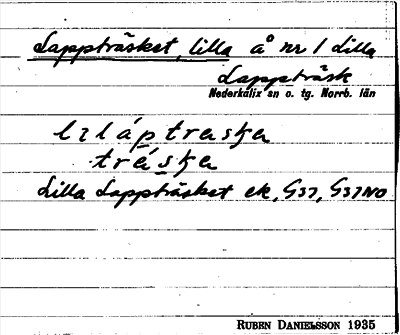 Lappträsket, lilla å nr 1 Lilla
Lappträsk
Nederkalix sn o. tg. Norrb. län
lɩláptrasʒa
träsʒa
Lilla Lappträsket ek, G37, G37NO
RUBEN DANIELSSON 1935